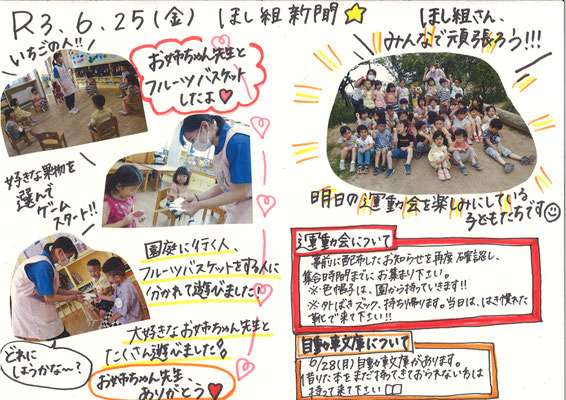 R3.6.25(金) ほし組新聞
いちごの人!!
お姉ちゃん先生と
フルーツバスケット
したよ
好きな果物を
選んで
ゲーム
スタート!!
園庭に行く人、
フルーツバスケットをする人に
分かれて遊びました!
大好きなお姉ちゃん先生と
たくさん遊びました
どれに
しようかな〜?
お姉ちゃん先生、
ありがとう
ほし組さん、
みんなで頑張ろう!!!
明日の運動会を楽しみにしている
子どもたちです
運動会について
事前に配布したお知らせを再度確認し、
集合時間までにお集まり下さい。
※色帽子は、園から持っていきます!!
※外ばきズック、持ち帰ります。当日は、はき慣れた
靴で来て下さい!!
自動車文庫について
6/28(月)自動車文庫があります。
借りた本をまだ持ってきておられない方は
持って来て下さい